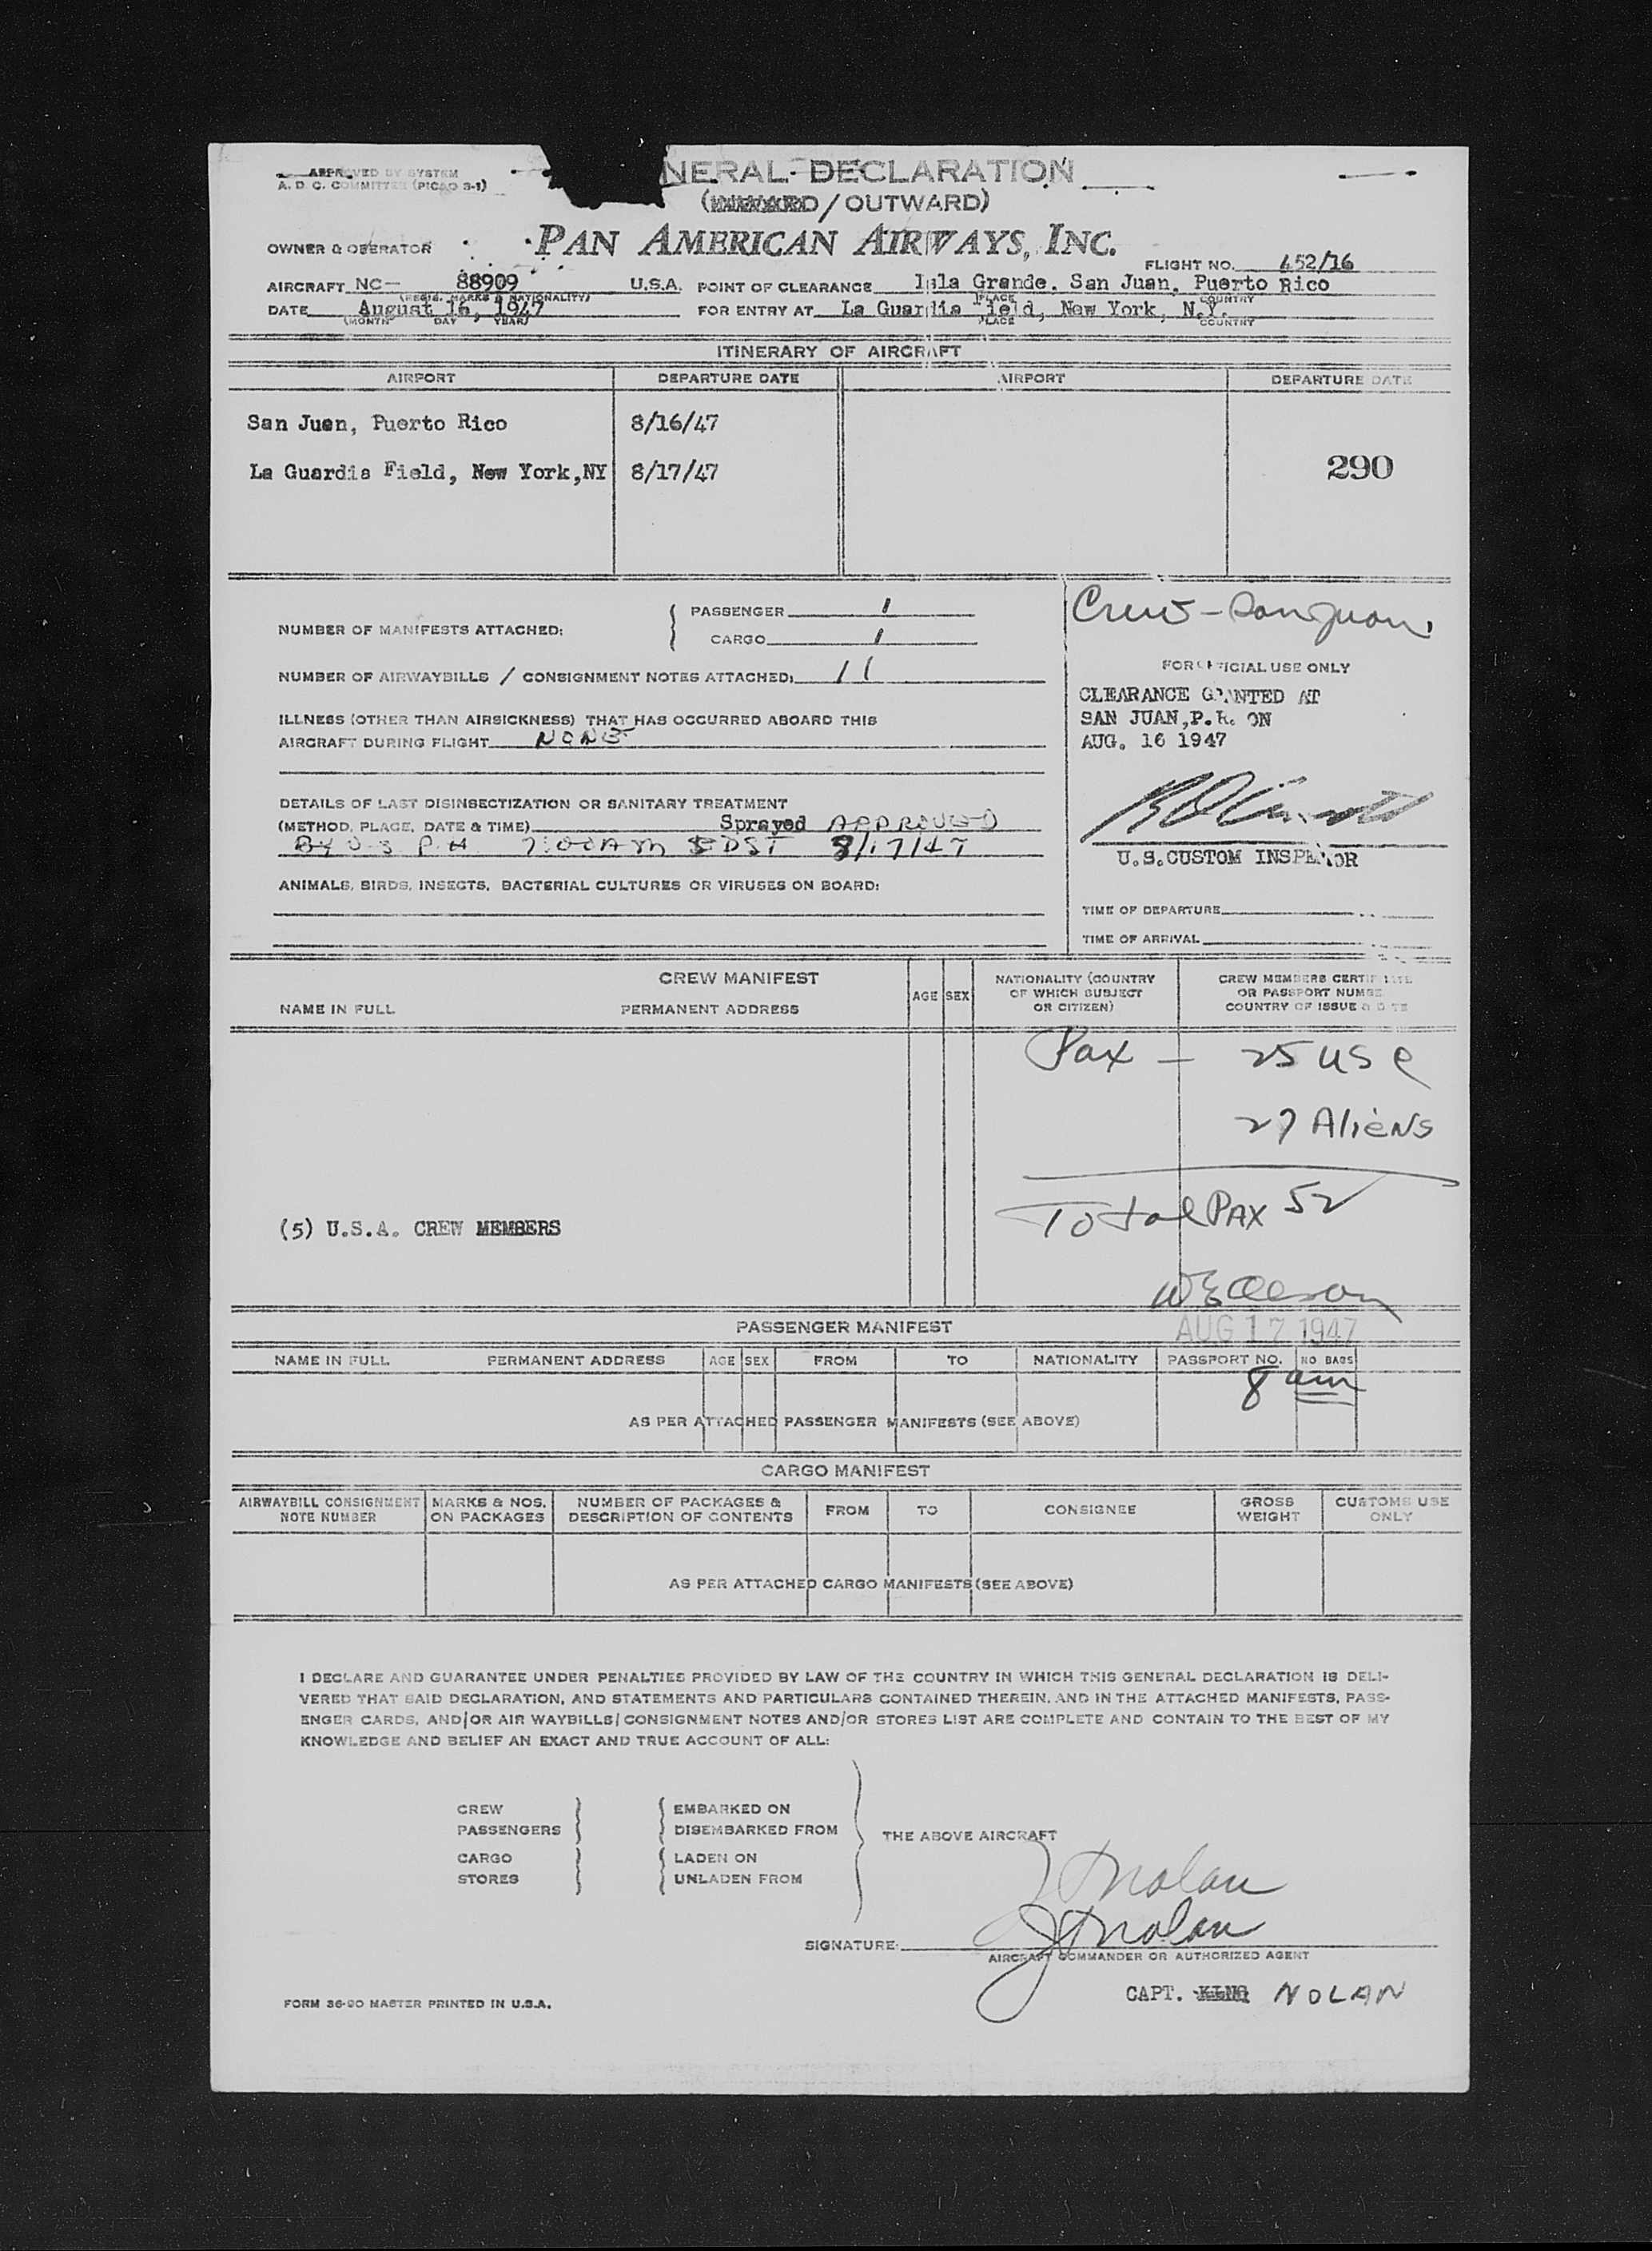 APPROVED BY SYSTEM
A. D. C. COMMITTEE (PICAO 3-1)
NERAL DECLARATION
(INWARD/OUTWARD)
OWNER & OPERATOR PAN AMERICAN AIRWAYS, INC.
FLIGHT NO. 452/16
AIRCRAFT NC- 88909 U.S.A. POINT OF CLEARANCE Isla Grande. San Juan, Puerto Rico
(REGIS. MARKS & NATIONALITY) PLACE COUNTRY
DATE August 16, 1947 FOR ENTRY AT La Guardia Field, New York, N.Y.
(MONTH DAY YEAR) PLACE COUNTRY
ITINERARY OF AIRCRAFT
AIRPORT DEPARTURE DATE AIRPORT DEPARTURE DATE
San Juan, Puerto Rico 8/16/47
La Guardia Field, New York,NY 8/17/47 290
Crew - San Juan
PASSENGER 1
NUMBER OF MANIFESTS ATTACHED:
CARGO 1
NUMBER OF AIRWAYBILLS / CONSIGNMENT NOTES ATTACHED: 11
FOR OFFICIAL USE ONLY
CLEARANCE GRANTED AT
SAN JUAN, P.R. ON
AUG. 16 1947
ILLNESS (OTHER THAN AIRSICKNESS) THAT HAS OCCURRED ABOARD THIS
AIRCRAFT DURING FLIGHT NONE
DETAILS OF LAST DISINSECTIZATION OR SANITARY TREATMENT
(METHOD, PLACE, DATE & TIME) Sprayed APPROVED
BY U S P H 7:00AM EDST 8/17/47
U.S.CUSTOM INSPECTOR
ANIMALS, BIRDS, INSECTS, BACTERIAL CULTURES OR VIRUSES ON BOARD:
TIME OF DEPARTURE
TIME OF ARRIVAL
CREW MANIFEST
NAME IN FULL PERMANENT ADDRESS AGE SEX
NATIONALITY (COUNTRY
OF WHICH SUBJECT
OR CITIZEN)
CREW MEMBERS CERTIFICATE
OR PASSPORT NUMBER
COUNTRY OF ISSUE & DATE
Pax - 25 USC
27 Aliens
Total PAX 52
(5) U.S.A. CREW MEMBERS
PASSENGER MANIFEST
AUG 17 1947
NAME IN FULL PERMANENT ADDRESS AGE SEX FROM TO NATIONALITY PASSPORT NO. NO BAGS
8 am
AS PER ATTACHED PASSENGER MANIFESTS (SEE ABOVE)
CARGO MANIFEST
AIRWAYBILL CONSIGNMENT
NOTE NUMBER
MARKS & NOS.
ON PACKAGES
NUMBER OF PACKAGES &
DESCRIPTION OF CONTENTS
FROM TO CONSIGNEE
GROSS
WEIGHT
CUSTOMS USE
ONLY
AS PER ATTACHED CARGO MANIFESTS (SEE ABOVE)
I DECLARE AND GUARANTEE UNDER PENALTIES PROVIDED BY LAW OF THE COUNTRY IN WHICH THIS GENERAL DECLARATION IS DELI-
VERED THAT SAID DECLARATION, AND STATEMENTS AND PARTICULARS CONTAINED THEREIN, AND IN THE ATTACHED MANIFESTS, PASS-
ENGER CARDS, AND/OR AIR WAYBILLS/CONSIGNMENT NOTES AND/OR STORES LIST ARE COMPLETE AND CONTAIN TO THE BEST OF MY
KNOWLEDGE AND BELIEF AN EXACT AND TRUE ACCOUNT OF ALL:
CREW EMBARKED ON
PASSENGERS DISEMBARKED FROM
THE ABOVE AIRCRAFT
CARGO LADEN ON
STORES UNLADEN FROM
J Nolan
SIGNATURE: J Nolan
AIRCRAFT COMMANDER OR AUTHORIZED AGENT
CAPT. KING NOLAN
FORM 36-90 MASTER PRINTED IN U.S.A.